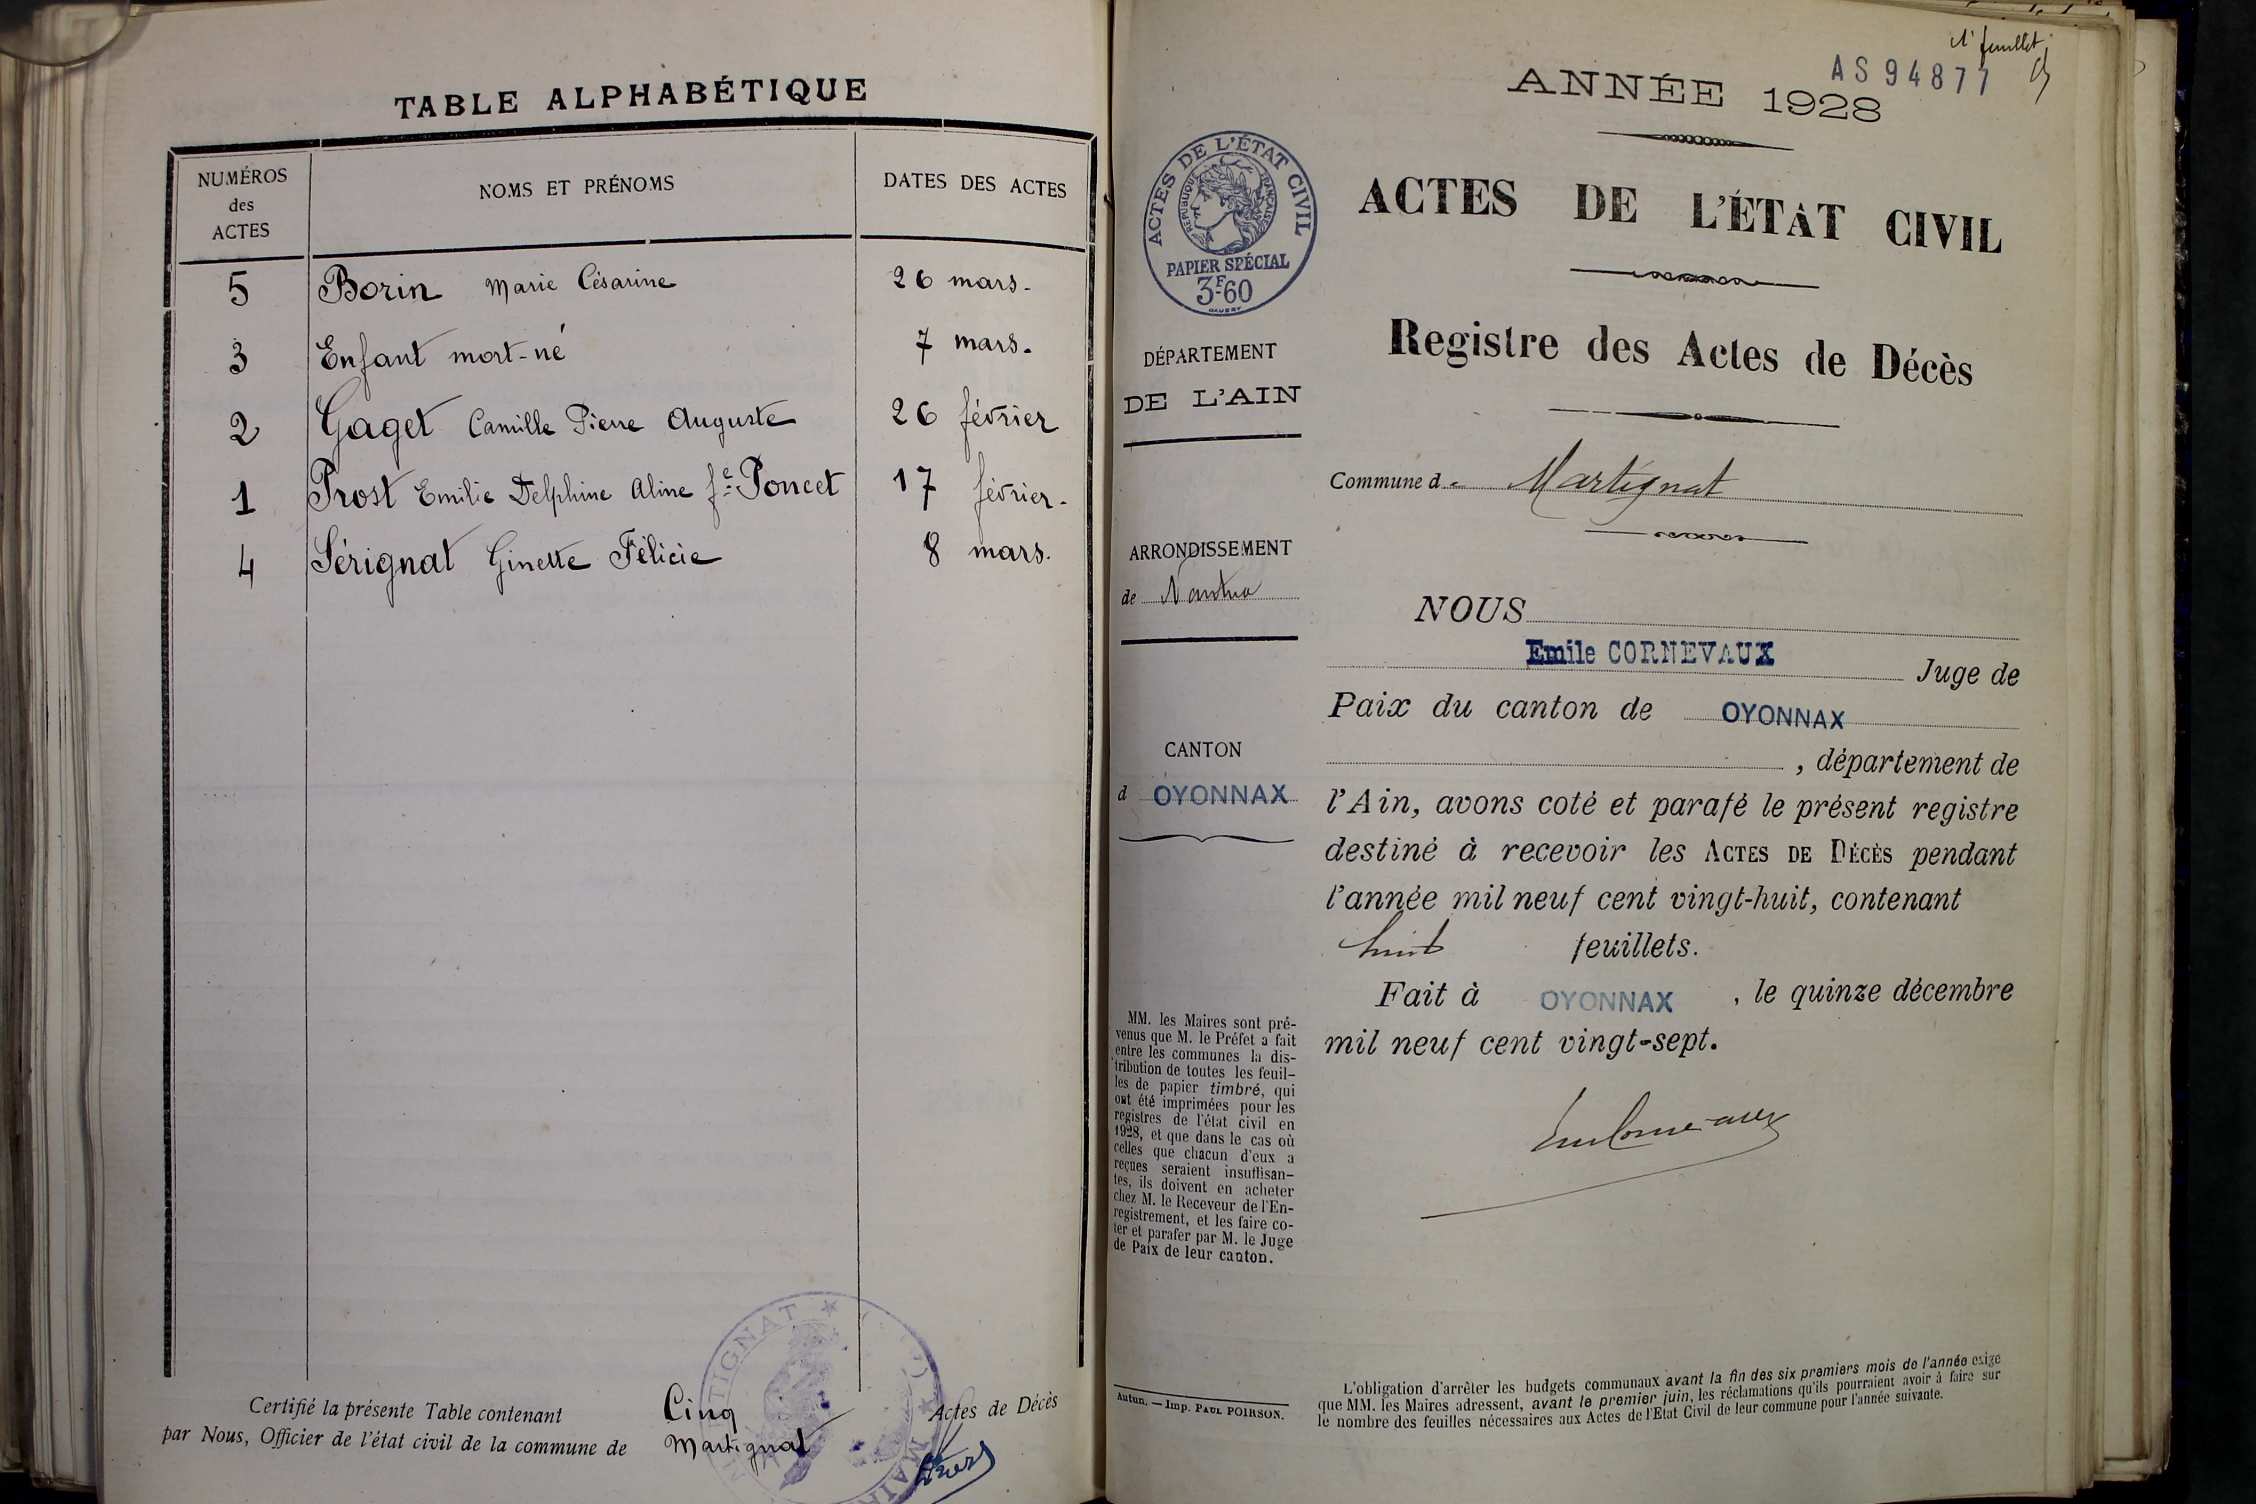 TABLE ALPHABÉTIQUE
NUMÉROS
des
ACTES
NOMS ET PRÉNOMS
DATES DES ACTES
5 Borin Marie Césarine 26 mars.
3 Enfant mort-né 7 mars.
2 Gaget Camille Pierre Auguste 26 février
1 Prost Emilie Delphine Aline fe Poncet 17 février.
4 Sérignat Ginette Félicie 8 mars.
Certifié la présente Table contenant Cinq Actes de Décès
par Nous, Officier de l'état civil de la commune de Martignat
1r feuillet
AS 94877
ANNÉE 1928
ACTES DE L'ÉTAT CIVIL
RÉPUBLIQUE FRANÇAISE
PAPIER SPÉCIAL
3F60
DÉPARTEMENT
DE L'AIN
ARRONDISSEMENT
de Nantua
CANTON
d OYONNAX
MM. les Maires sont pré-
venus que M. le Préfet a fait
entre les communes la dis-
tribution de toutes les feuil-
les de papier timbré, qui
ont été imprimées pour les
registres de l'état civil en
1928, et que dans le cas où
celles que chacun d'eux a
reçues seraient insuffisan-
tes, ils doivent en acheter
chez M. le Receveur de l'En-
registrement, et les faire co-
ter et parafer par M. le Juge
de Paix de leur canton.
Autun. — Imp. PAUL POIRSON.
ACTES DE L'ÉTAT CIVIL
Registre des Actes de Décès
Commune de Martignat
NOUS
Emile CORNEVAUX Juge de
Paix du canton de OYONNAX
, département de
l'Ain, avons coté et parafé le présent registre
destiné à recevoir les ACTES DE DÉCÈS pendant
l'année mil neuf cent vingt-huit, contenant
huit feuillets.
Fait à OYONNAX , le quinze décembre
mil neuf cent vingt-sept.
L'obligation d'arrêter les budgets communaux avant la fin des six premiers mois de l'année exige
que MM. les Maires adressent, avant le premier juin, les réclamations qu'ils pourraient avoir à faire sur
le nombre des feuilles nécessaires aux Actes de l'Etat Civil de leur commune pour l'année suivante.